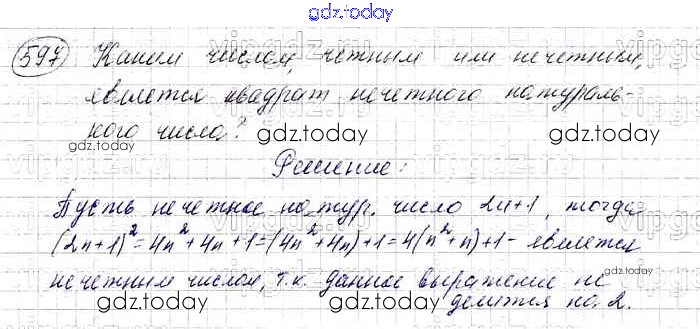 gdz.today
597 Каким числом, четным или нечетным,
является квадрат нечетного натураль-
ного числа?
gdz.today gdz.today
Решение:
Пусть нечетное натур. число 2n+1, тогда
(2n+1)²=4n²+4n+1=(4n²+4n)+1=4(n²+n)+1- является
нечетным числом, т.к. данное выражение не
делится на 2.
gdz.today gdz.today